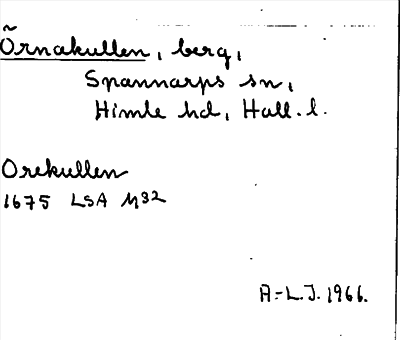 Örnakullen, berg,
Spannarps sn,
Himle hd, Hall. l.
Orekullen
1675 LSA N32
A.-L.J. 1966.